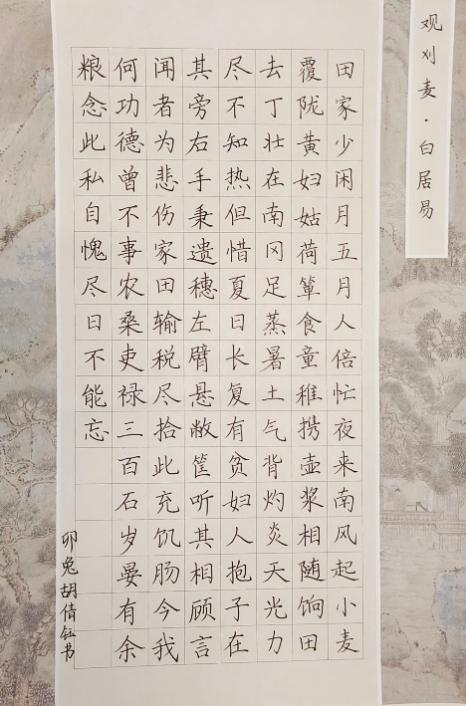 观刈麦·白居易
田家少闲月五月人倍忙夜来南风起小麦
覆陇黄妇姑荷箪食童稚携壶浆相随饷田
去丁壮在南冈足蒸暑土气背灼炎天光力
尽不知热但惜夏日长复有贫妇人抱子在
其旁右手秉遗穗左臂悬敝筐听其相顾言
闻者为悲伤家田输税尽拾此充饥肠今我
何功德曾不事农桑吏禄三百石岁晏有余
粮念此私自愧尽日不能忘
卯兔胡倩钰书